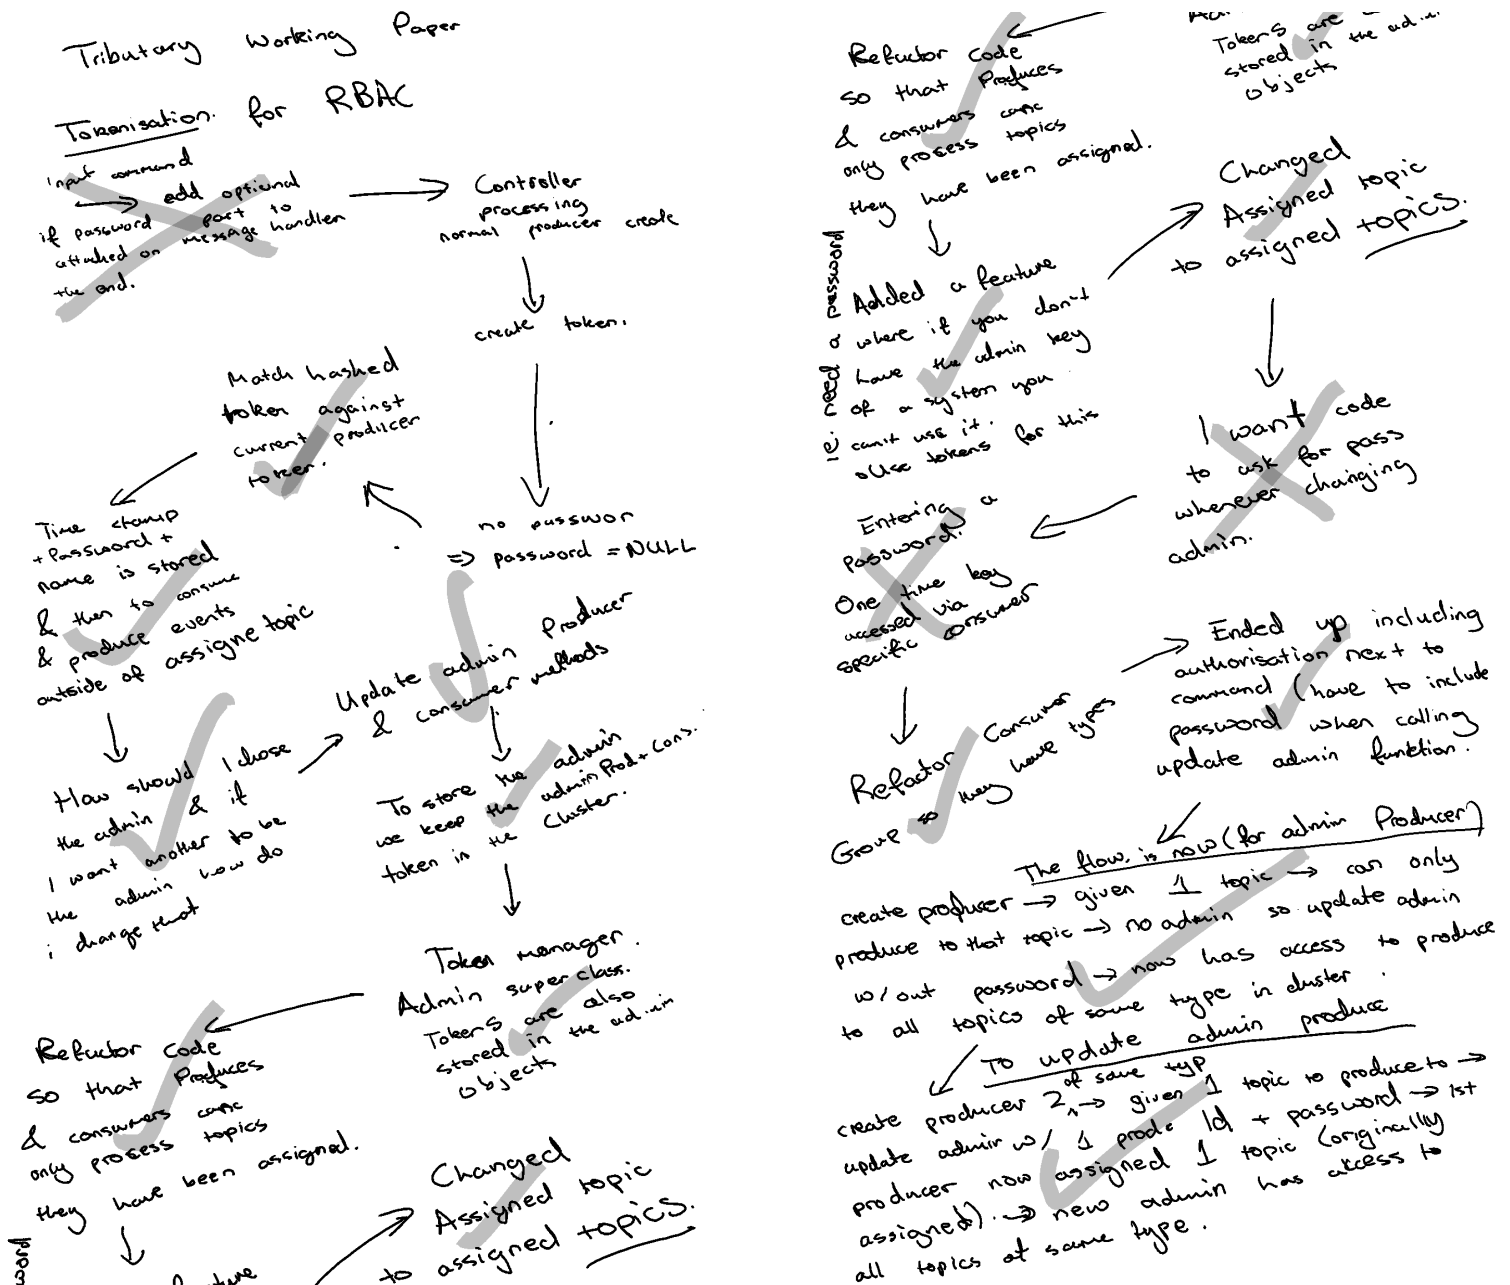 Tributary Working Paper
Tokenisation for RBAC
Input command
→ add optional
if password part to
attached on message handler
the end.
Controller
processing
normal producer create
create token.
no passwor
=> password = NULL
Match hashed
token against
current producer
token.
Time stamp
+ Password +
name is stored
& then to consume
& produce events
outside of assigne topic
How should I chose
the admin & if
I want another to be
the admin how do
i change that
Update admin Producer
& consumer methods
To store the admin
we keep the admin Prod + Cons.
token in the Cluster.
Token manager.
Admin super class.
Tokens are also
stored in the admin
objects
Refactor code
so that Produces
& consumers
only process topics
they have been assigned.
Changed
Assigned topic
to assigned topics.
word
feature
Tokens are
stored in the admin
objects
Refactor code
so that Produces
& consumers
only process topics
they have been assigned.
Added a feature
where if you don't
have the admin key
of a system you
can't use it.
Use tokens for this
ie: need a password
Changed
Assigned topic
to assigned topics.
I want code
to ask for pass
whenever changing
admin.
Entering a
password.
One time key
accessed via
specific consumer
Refactor Consumer
Group so they have types
Ended up including
authorisation next to
command (have to include
password when calling
update admin function.
The flow is now (for admin Producer)
create producer → given 1 topic → can only
produce to that topic → no admin so update admin
w/out password → now has access to produce
to all topics of same type in cluster.
To update admin produce
create producer 2 of same typ → given 1 topic to produce to →
update admin w/ 1 prod. Id + password → 1st
producer now assigned 1 topic (originally
assigned). → new admin has access to
all topics of same type.